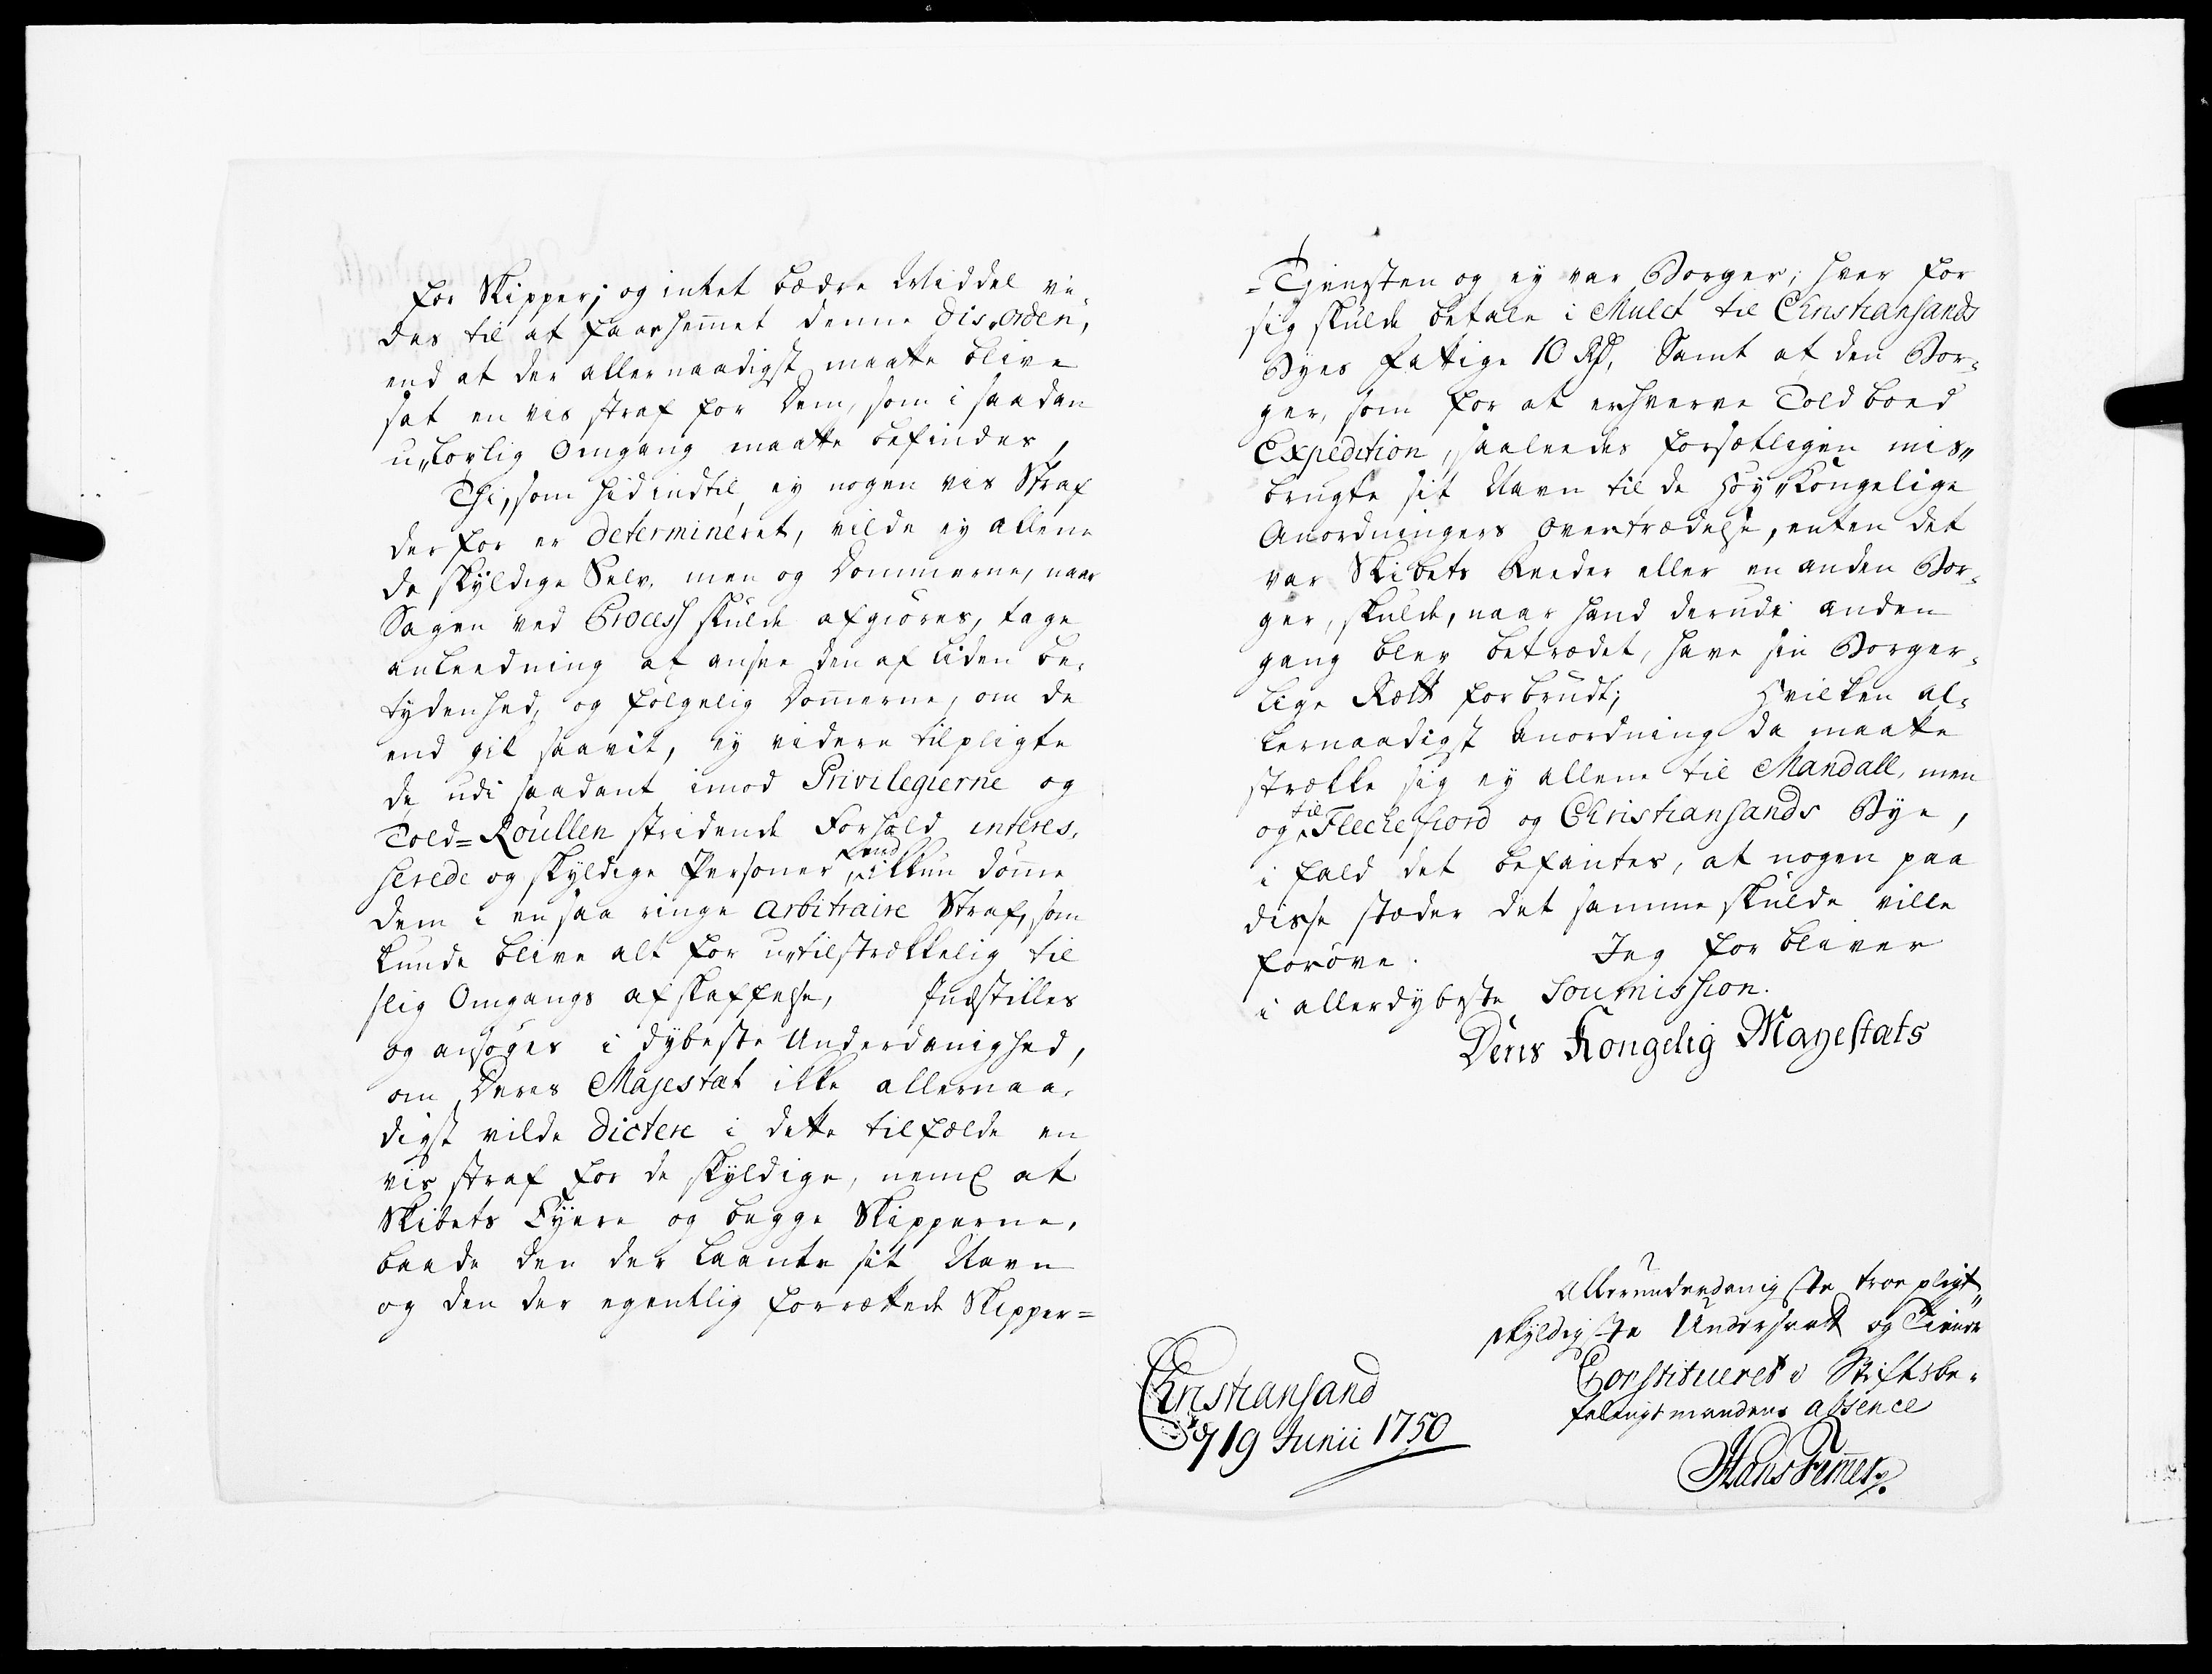 for Skipper; og intet bædre Middel vi-
des til at faae hemmet denne Dis-orden,
end at der allernaadigst maatte blive
sat en vis straf for Dem, som i saadan
u-lovlig Omgang maatte befindes,
Thi, som hidindtil ey nogen vis Straf
derfor er determineret, vilde ey allene
de skyldige Selv, men og Dommerne, naar
Sagen ved Process skulde afgiöres, tage
anleedning at ansee den af liden be-
tydenhed, og følgelig Domerne, om de
end gik saavit, ey videre tilpligte
de udi saadant imod Privilegierne og
Told=Roullen stridende Forhold interes-
serede og skyldige Personer, end ikkun döme
dem i en saa ringe arbitraire Straf, som
kunde blive alt for u-tilstrækkelig til
slig Omgangs afskaffelse, Indstilles
og ansøges i dybeste Underdanighed,
om Deres Majestæt ikke allernaa-
digst vilde dictere i dette tilfælde en
vis straf for de skyldige, neml at
Skibets Eyere og begge Skipperne,
baade den der laante sit Navn
og den der egentlig forrettede Skipper=
=Tjenesten og ey var Borger, hver for
sig skulde betale i Mulct til Christiansands
Byes Fattige 10 Rd, Samt at den Bor-
ger, som for at erhverve Toldboed
Expedition, saaleedes forsætligen mis-
brugte sit Navn til de Høy-Kongelige
Anordningers Overtrædelse, enten det
var Skibets Reeder eller en anden Bor-
ger, skulde, naar hand derudi anden
gang blev betrædet, have sin Borger-
lige Rætt forbrudt; Hvilken al-
lernaadigst Anordning da maatte
strække sig ey allene til Mandall, men
og til Flechefiord og Christiansands Bye,
i fald det befantes, at nogen paa
disse stæder det samme skulde ville
forøve. Jeg forbliver
i allerdybeste Soumission.
Deris Kongelig Mayestats
Allerunderdanigste troe pligt-
skyldigste Undersaatt og Tienere
Constitueret i Stiftsbe-
falingsmandens absence
Hans Femer
Christiansand
d 19 Junii 1750